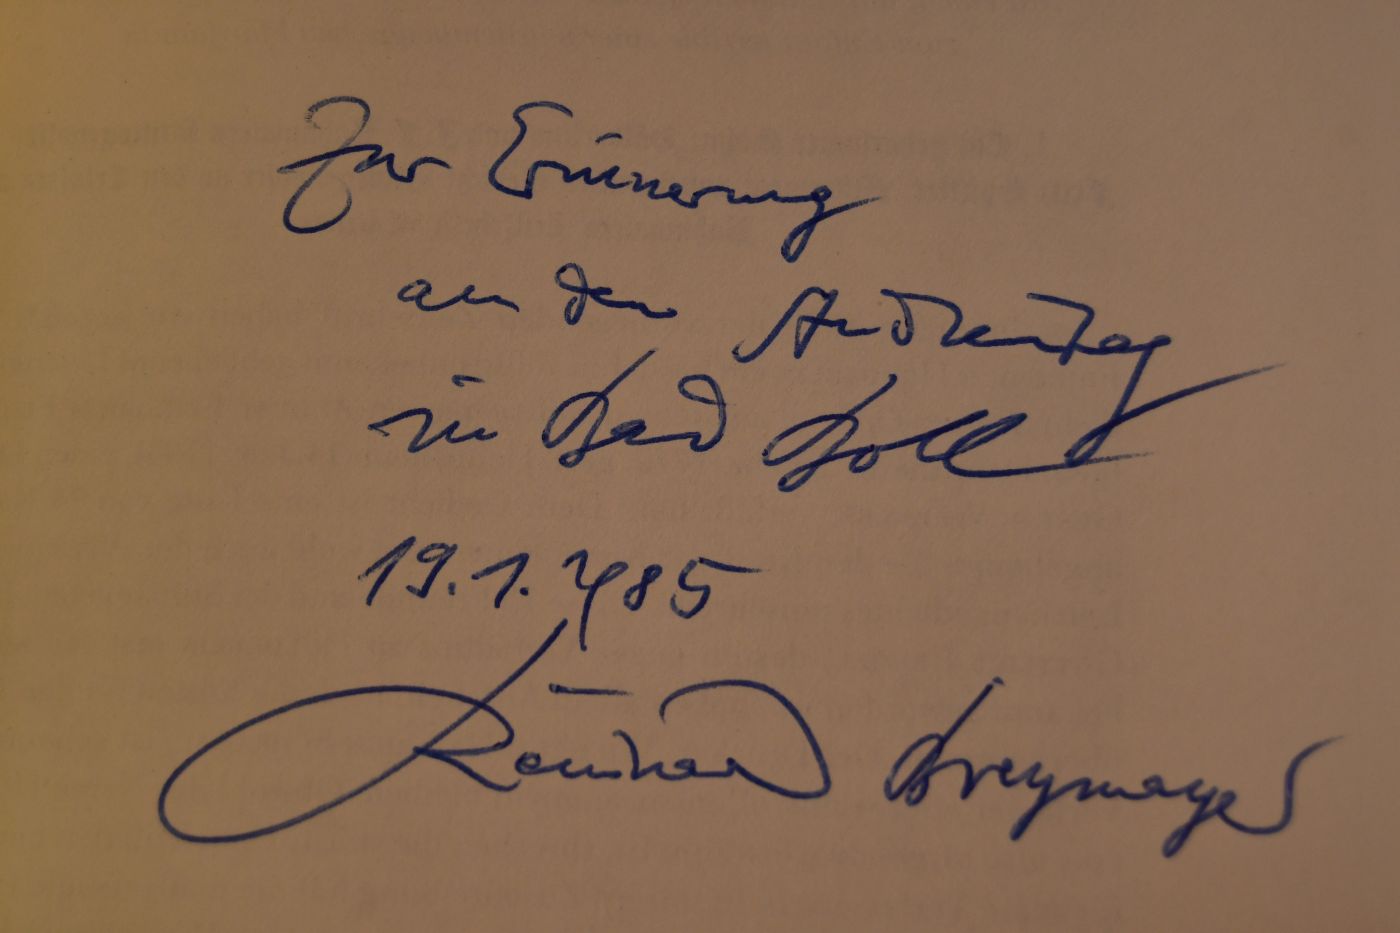 Zur Erinnerung
an den Studientag
in Bad Boll
19.1.1985
Reinhard Breymayer